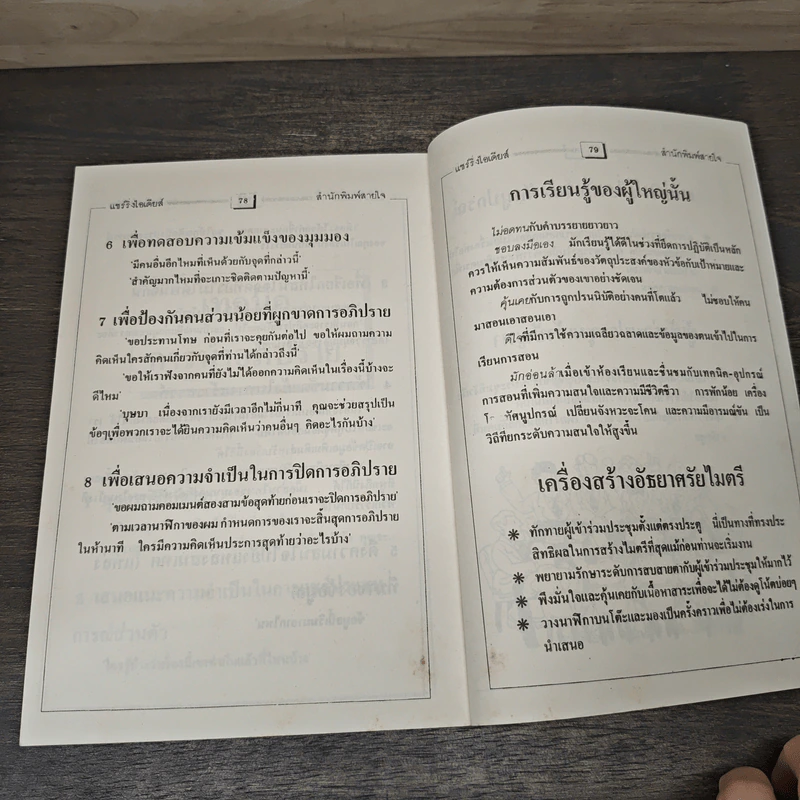 แชร์ริ่งไอเดียส์ 78 สำนักพิมพ์สายใจ
6 เพื่อทดสอบความเข้มแข็งของมุมมอง
'มีคนอื่นอีกไหมที่เห็นด้วยกับจุดที่กล่าวนี้'
'สำคัญมากไหมที่จะเกาะชิดติดตามปัญหานี้'
7 เพื่อป้องกันคนส่วนน้อยที่ผูกขาดการอภิปราย
'ขอประทานโทษ ก่อนที่เราจะคุยกันต่อไป ขอให้ผมถามความ
คิดเห็นใครสักคนเกี่ยวกับจุดที่ท่านได้กล่าวถึงนี้'
'ขอให้เราฟังจากคนที่ยังไม่ได้ออกความคิดเห็นในเรื่องนี้บ้างจะ
ดีไหม'
'บุษบา เนื่องจากเรายังมีเวลาอีกไม่กี่นาที คุณจะช่วยสรุปเป็น
ข้อๆเพื่อพวกเราจะได้ยินความคิดเห็นว่าคนอื่นๆ คิดอะไรกันบ้าง'
8 เพื่อเสนอความจำเป็นในการปิดการอภิปราย
'ขอผมถามคอมเมนต์สองสามข้อสุดท้ายก่อนเราจะปิดการอภิปราย'
'ตามเวลานาฬิกาของผม กำหนดการของเราจะสิ้นสุดการอภิปราย
ในห้านาที ใครมีความคิดเห็นประการสุดท้ายว่าอะไรบ้าง'
แชร์ริ่งไอเดียส์ 79 สำนักพิมพ์สายใจ
การเรียนรู้ของผู้ใหญ่นั้น
ไม่อดทนกับคำบรรยายยาวยาว
ชอบลงมือเอง มักเรียนรู้ได้ดีในช่วงที่ยึดการปฏิบัติเป็นหลัก
ควรให้เห็นความสัมพันธ์ของวัตถุประสงค์ของหัวข้อกับเป้าหมายและ
ความต้องการส่วนตัวของเขาอย่างชัดเจน
คุ้นเคยกับการถูกปรนนิบัติอย่างคนที่โตแล้ว ไม่ชอบให้คน
มาสอนเอาสอนเอา
ดีใจที่มีการใช้ความเฉลียวฉลาดและข้อมูลของตนเข้าไปในการ
เรียนการสอน
มักอ่อนล้าเมื่อเข้าห้องเรียนและชื่นชมกับเทคนิค-อุปกรณ์
การสอนที่เพิ่มความสนใจและความมีชีวิตชีวา การพักน้อย เครื่อง
ทัศนูปกรณ์ เปลี่ยนจังหวะจะโคน และความมีอารมณ์ขัน เป็น
วิธีที่ยกระดับความสนใจให้สูงขึ้น
เครื่องสร้างอัธยาศรัยไมตรี
* ทักทายผู้เข้าร่วมประชุมตั้งแต่ตรงประตู นี่เป็นทางที่ทรงประ
สิทธิผลในการสร้างไมตรีที่สุดแม้ก่อนท่านจะเริ่มงาน
* พยายามรักษาระดับการสบสายตากับผู้เข้าร่วมประชุมให้มากไว้
* พึงมั่นใจและคุ้นเคยกับเนื้อหาสาระเพื่อจะได้ไม่ต้องดูโน้ตบ่อยๆ
* วางนาฬิกาบนโต๊ะและมองเป็นครั้งคราวเพื่อไม่ต้องเร่งในการ
นำเสนอ